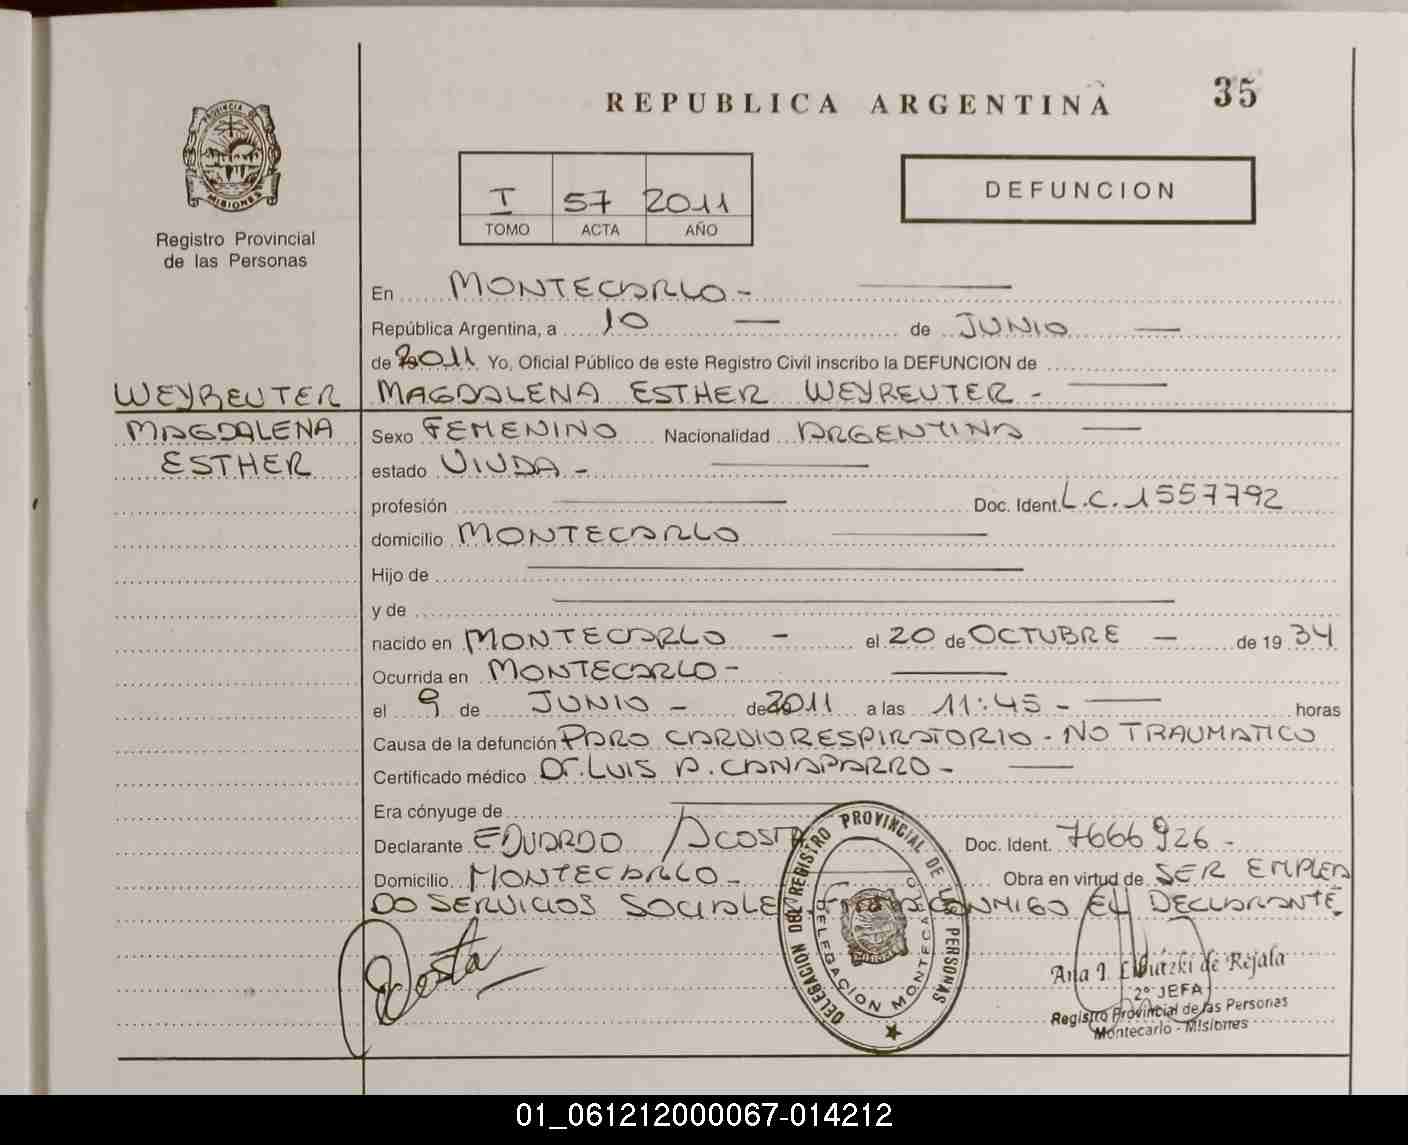 REPUBLICA ARGENTINA
35
PROVINCIA DE
MISIONES
Registro Provincial
de las Personas
I 57 2011
TOMO ACTA AÑO
DEFUNCION
En MONTECARLO -
República Argentina, a 10 de JUNIO
de 2011 Yo, Oficial Público de este Registro Civil inscribo la DEFUNCION de
WEYREUTER MAGDALENA ESTHER WEYREUTER -
MAGDALENA Sexo FEMENINO Nacionalidad ARGENTINA
ESTHER estado VIUDA -
profesión Doc. Ident. L.C. 1557792
domicilio MONTECARLO
Hijo de
y de
nacido en MONTECARLO - el 20 de OCTUBRE - de 19 34
Ocurrida en MONTECARLO -
el 9 de JUNIO - de 2011 a las 11:45 - horas
Causa de la defunción PARO CARDIORESPIRATORIO - NO TRAUMATICO
Certificado médico Dr. LUIS A. CANAPARRO -
Era cónyuge de
Declarante EDUARDO ACOSTA Doc. Ident. 7666926 -
Domicilio MONTECARLO - Obra en virtud de SER EMPLEA
DO SERVICIOS SOCIALE CONMIGO EL DECLARANTE.
DELEGACION DEL REGISTRO PROVINCIAL DE LAS PERSONAS
DELEGACION MONTECARLO
MISIONES
Acosta
Ana I. de Rejala
2º JEFA
Registro Provincial de las Personas
Montecarlo - Misiones
01_061212000067-014212